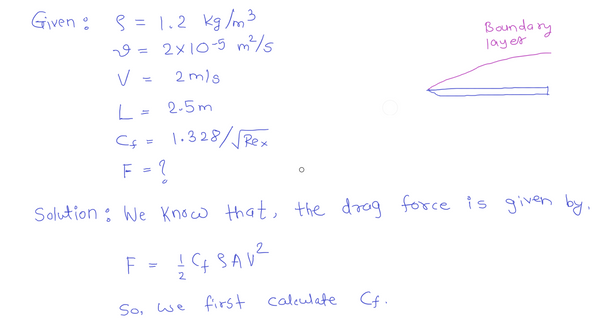 Given : ρ = 1.2 kg/m³
ϑ = 2×10-5 m²/s
V = 2 m/s
L = 2.5 m
Cf = 1.328/√Rex
F = ?
Boundary
layer
Solution : We know that, the drag force is given by,
F = 1/2 Cf ρ A V²
So, we first calculate Cf.